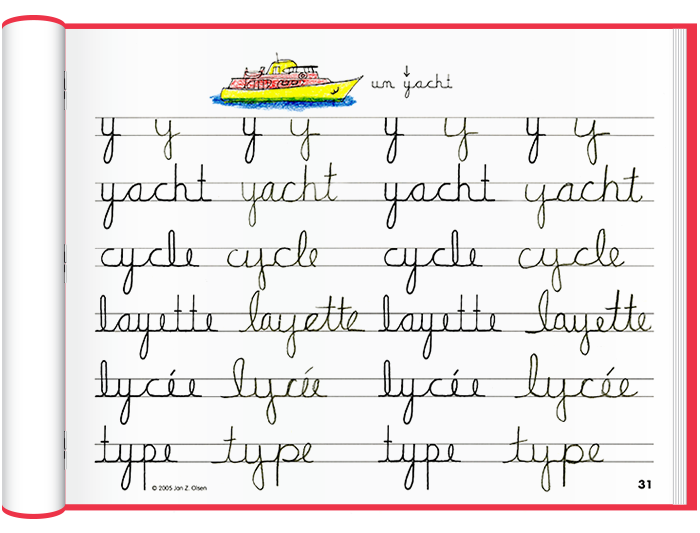 un yacht
y y y y y y y y
yacht yacht yacht yacht
cycle cycle cycle cycle
layette layette layette layette
lycée lycée lycée lycée
type type type type
© 2005 Jan Z. Olsen
31